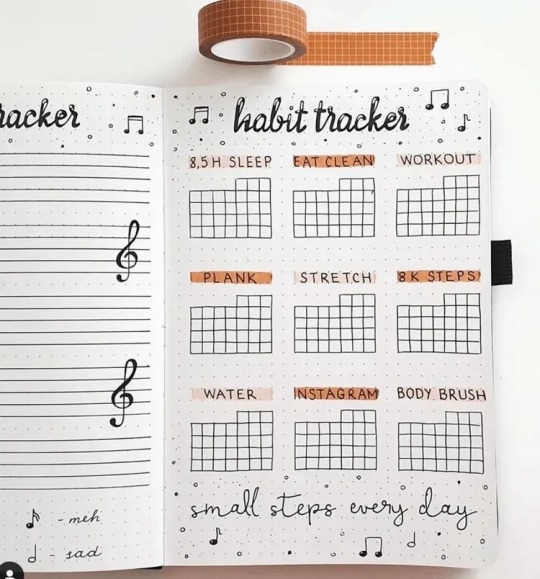 racker
- meh
- sad
habit tracker
8,5H SLEEP EAT CLEAN WORKOUT
PLANK STRETCH 8K STEPS
WATER INSTAGRAM BODY BRUSH
small steps every day